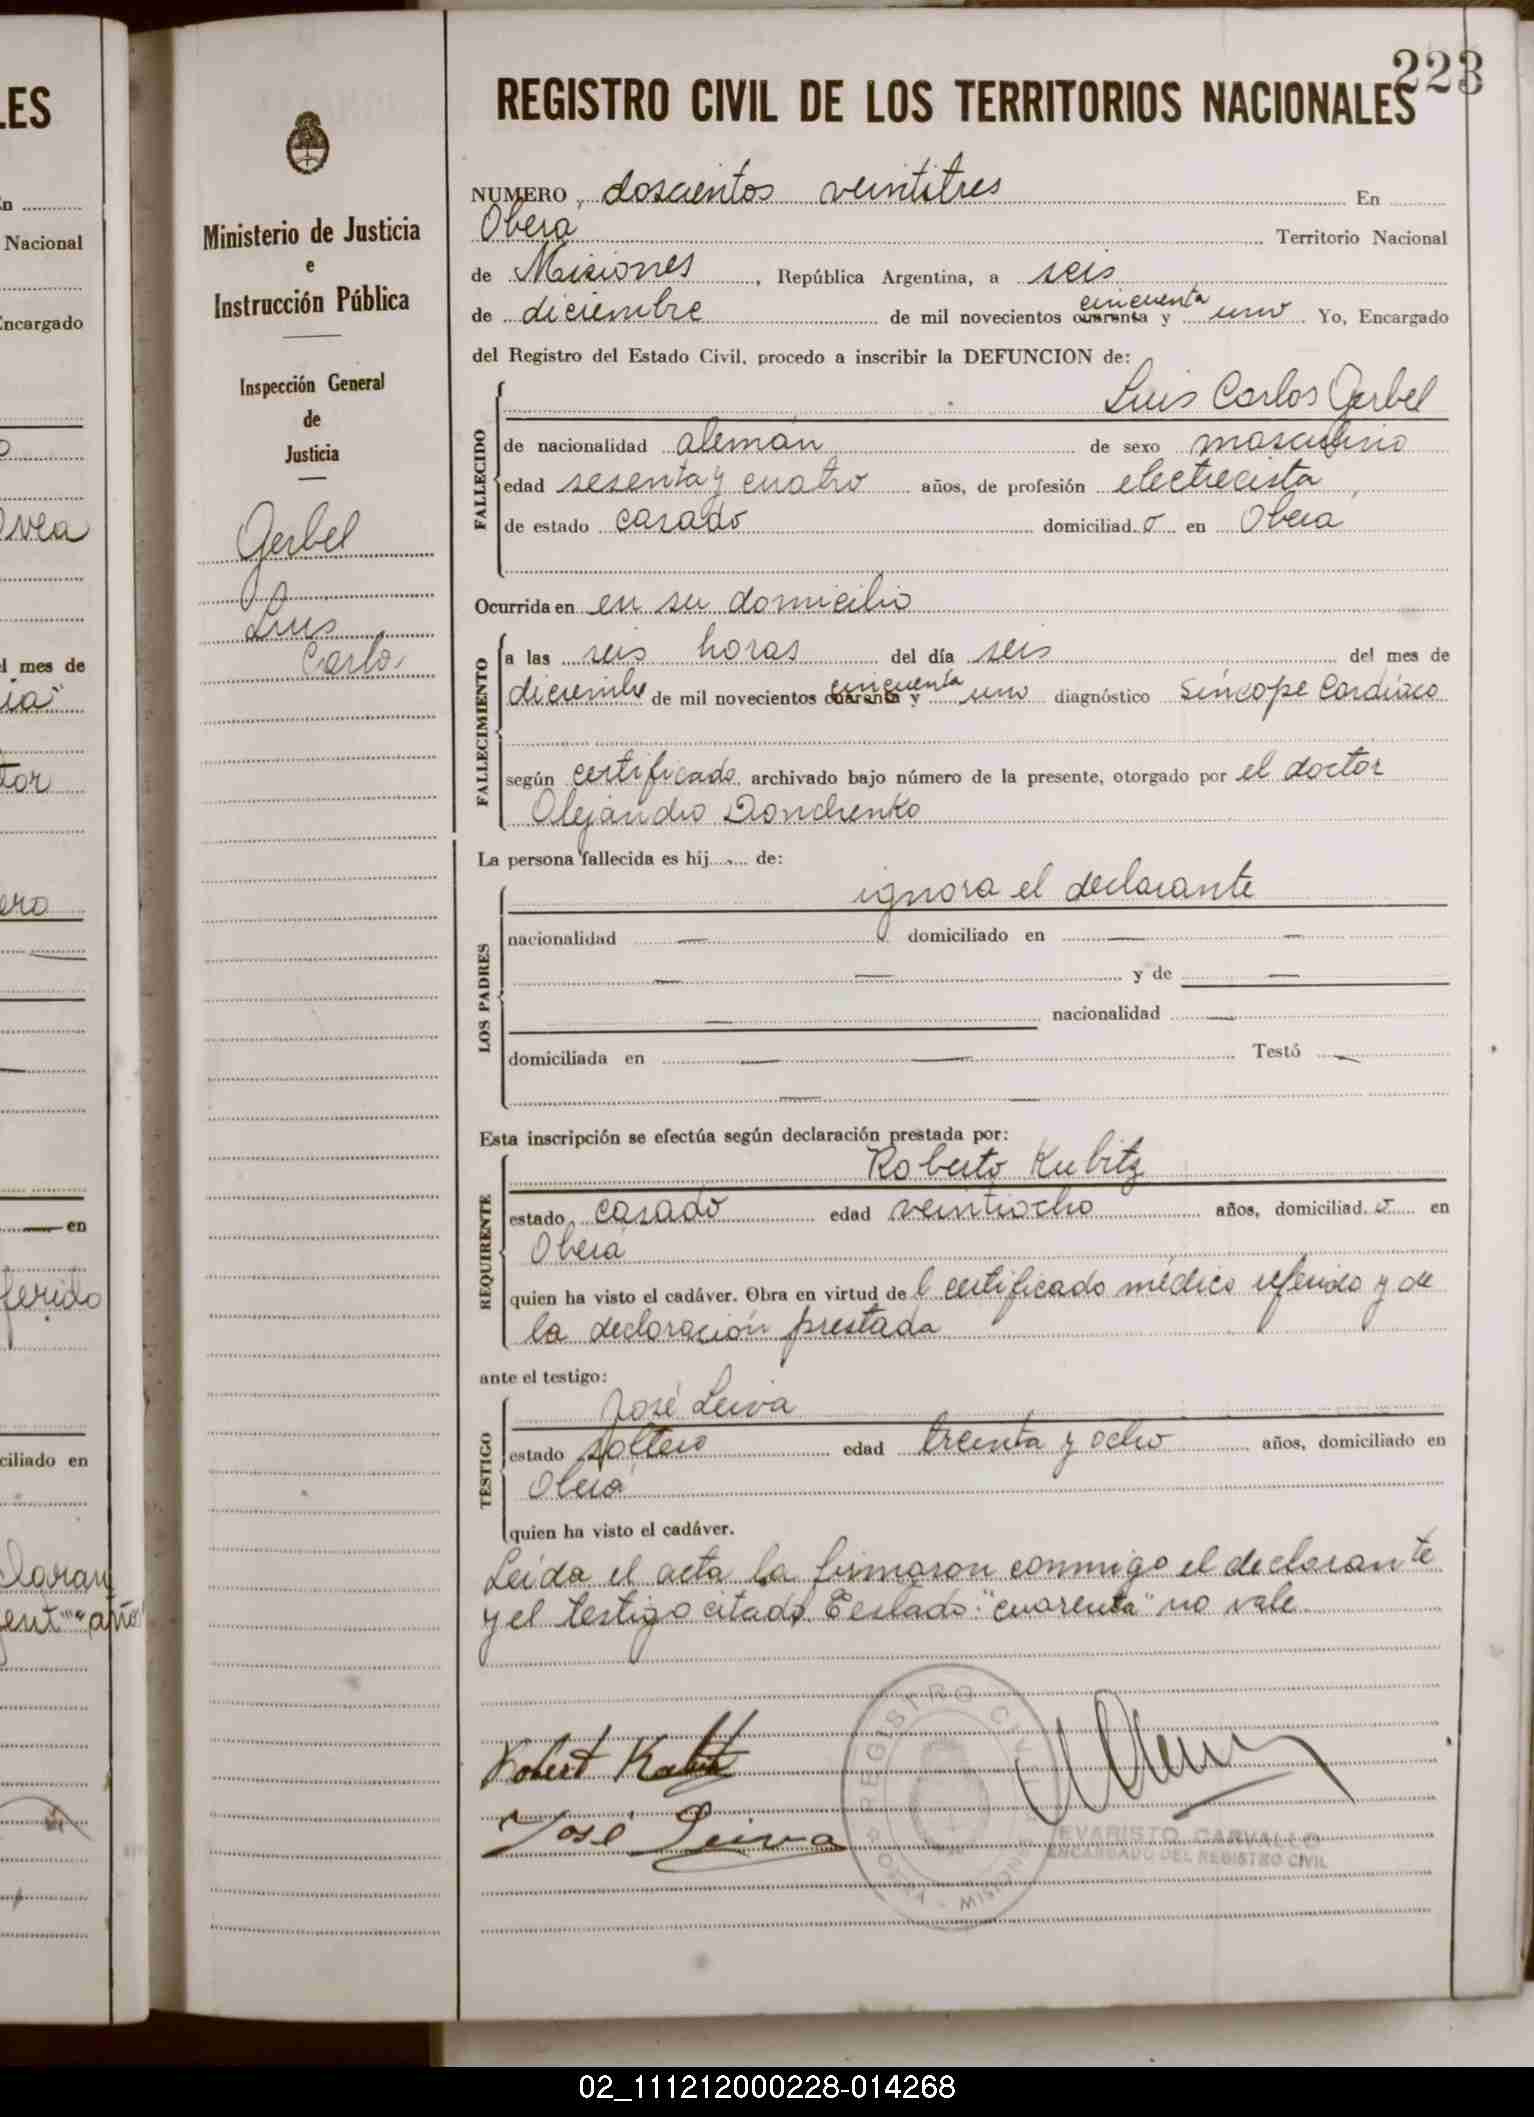 LES
Nacional
Encargado
mes de
en
ferido
ciliado en
Ministerio de Justicia
e
Instrucción Pública
Inspección General
de
Justicia
Gerbel
Luis
Carlos
223
REGISTRO CIVIL DE LOS TERRITORIOS NACIONALES
NUMERO doscientos veintitres En
Oberá Territorio Nacional
de Misiones, República Argentina, a seis
cincuenta
de diciembre de mil novecientos cuarenta y uno Yo, Encargado
del Registro del Estado Civil, procedo a inscribir la DEFUNCION de:
Luis Carlos Gerbel
FALLECIDO
de nacionalidad alemán de sexo masculino
edad sesenta y cuatro años, de profesión electrecista
de estado casado domiciliad o en Oberá
Ocurrida en en su domicilio
FALLECIMIENTO
a las seis horas del día seis del mes de
cincuenta
diciembre de mil novecientos cuarenta y uno diagnóstico Síncope Cardíaco
según certificado archivado bajo número de la presente, otorgado por el doctor
Alejandro Donchenko
La persona fallecida es hij de:
LOS PADRES
ignora el declarante
nacionalidad — domiciliado en — —
— — y de —
— nacionalidad —
domiciliada en — — Testó —
— —
Esta inscripción se efectúa según declaración prestada por:
REQUIRENTE
Roberto Kubitz
estado casado edad veintiocho años, domiciliad o en
Oberá
quien ha visto el cadáver. Obra en virtud de l certificado médico referido y de
la declaración prestada
ante el testigo:
TESTIGO
José Leiva
estado soltero edad treinta y ocho años, domiciliado en
Oberá
quien ha visto el cadáver.
Leída el acta la firmaron conmigo el declarante
y el testigo citado Testado: "cuarenta" no vale
Robert Kubitz
José Leiva
REGISTRO CIVIL
EVARISTO CARVALLO
ENCARGADO DEL REGISTRO CIVIL
02_111212000228-014268